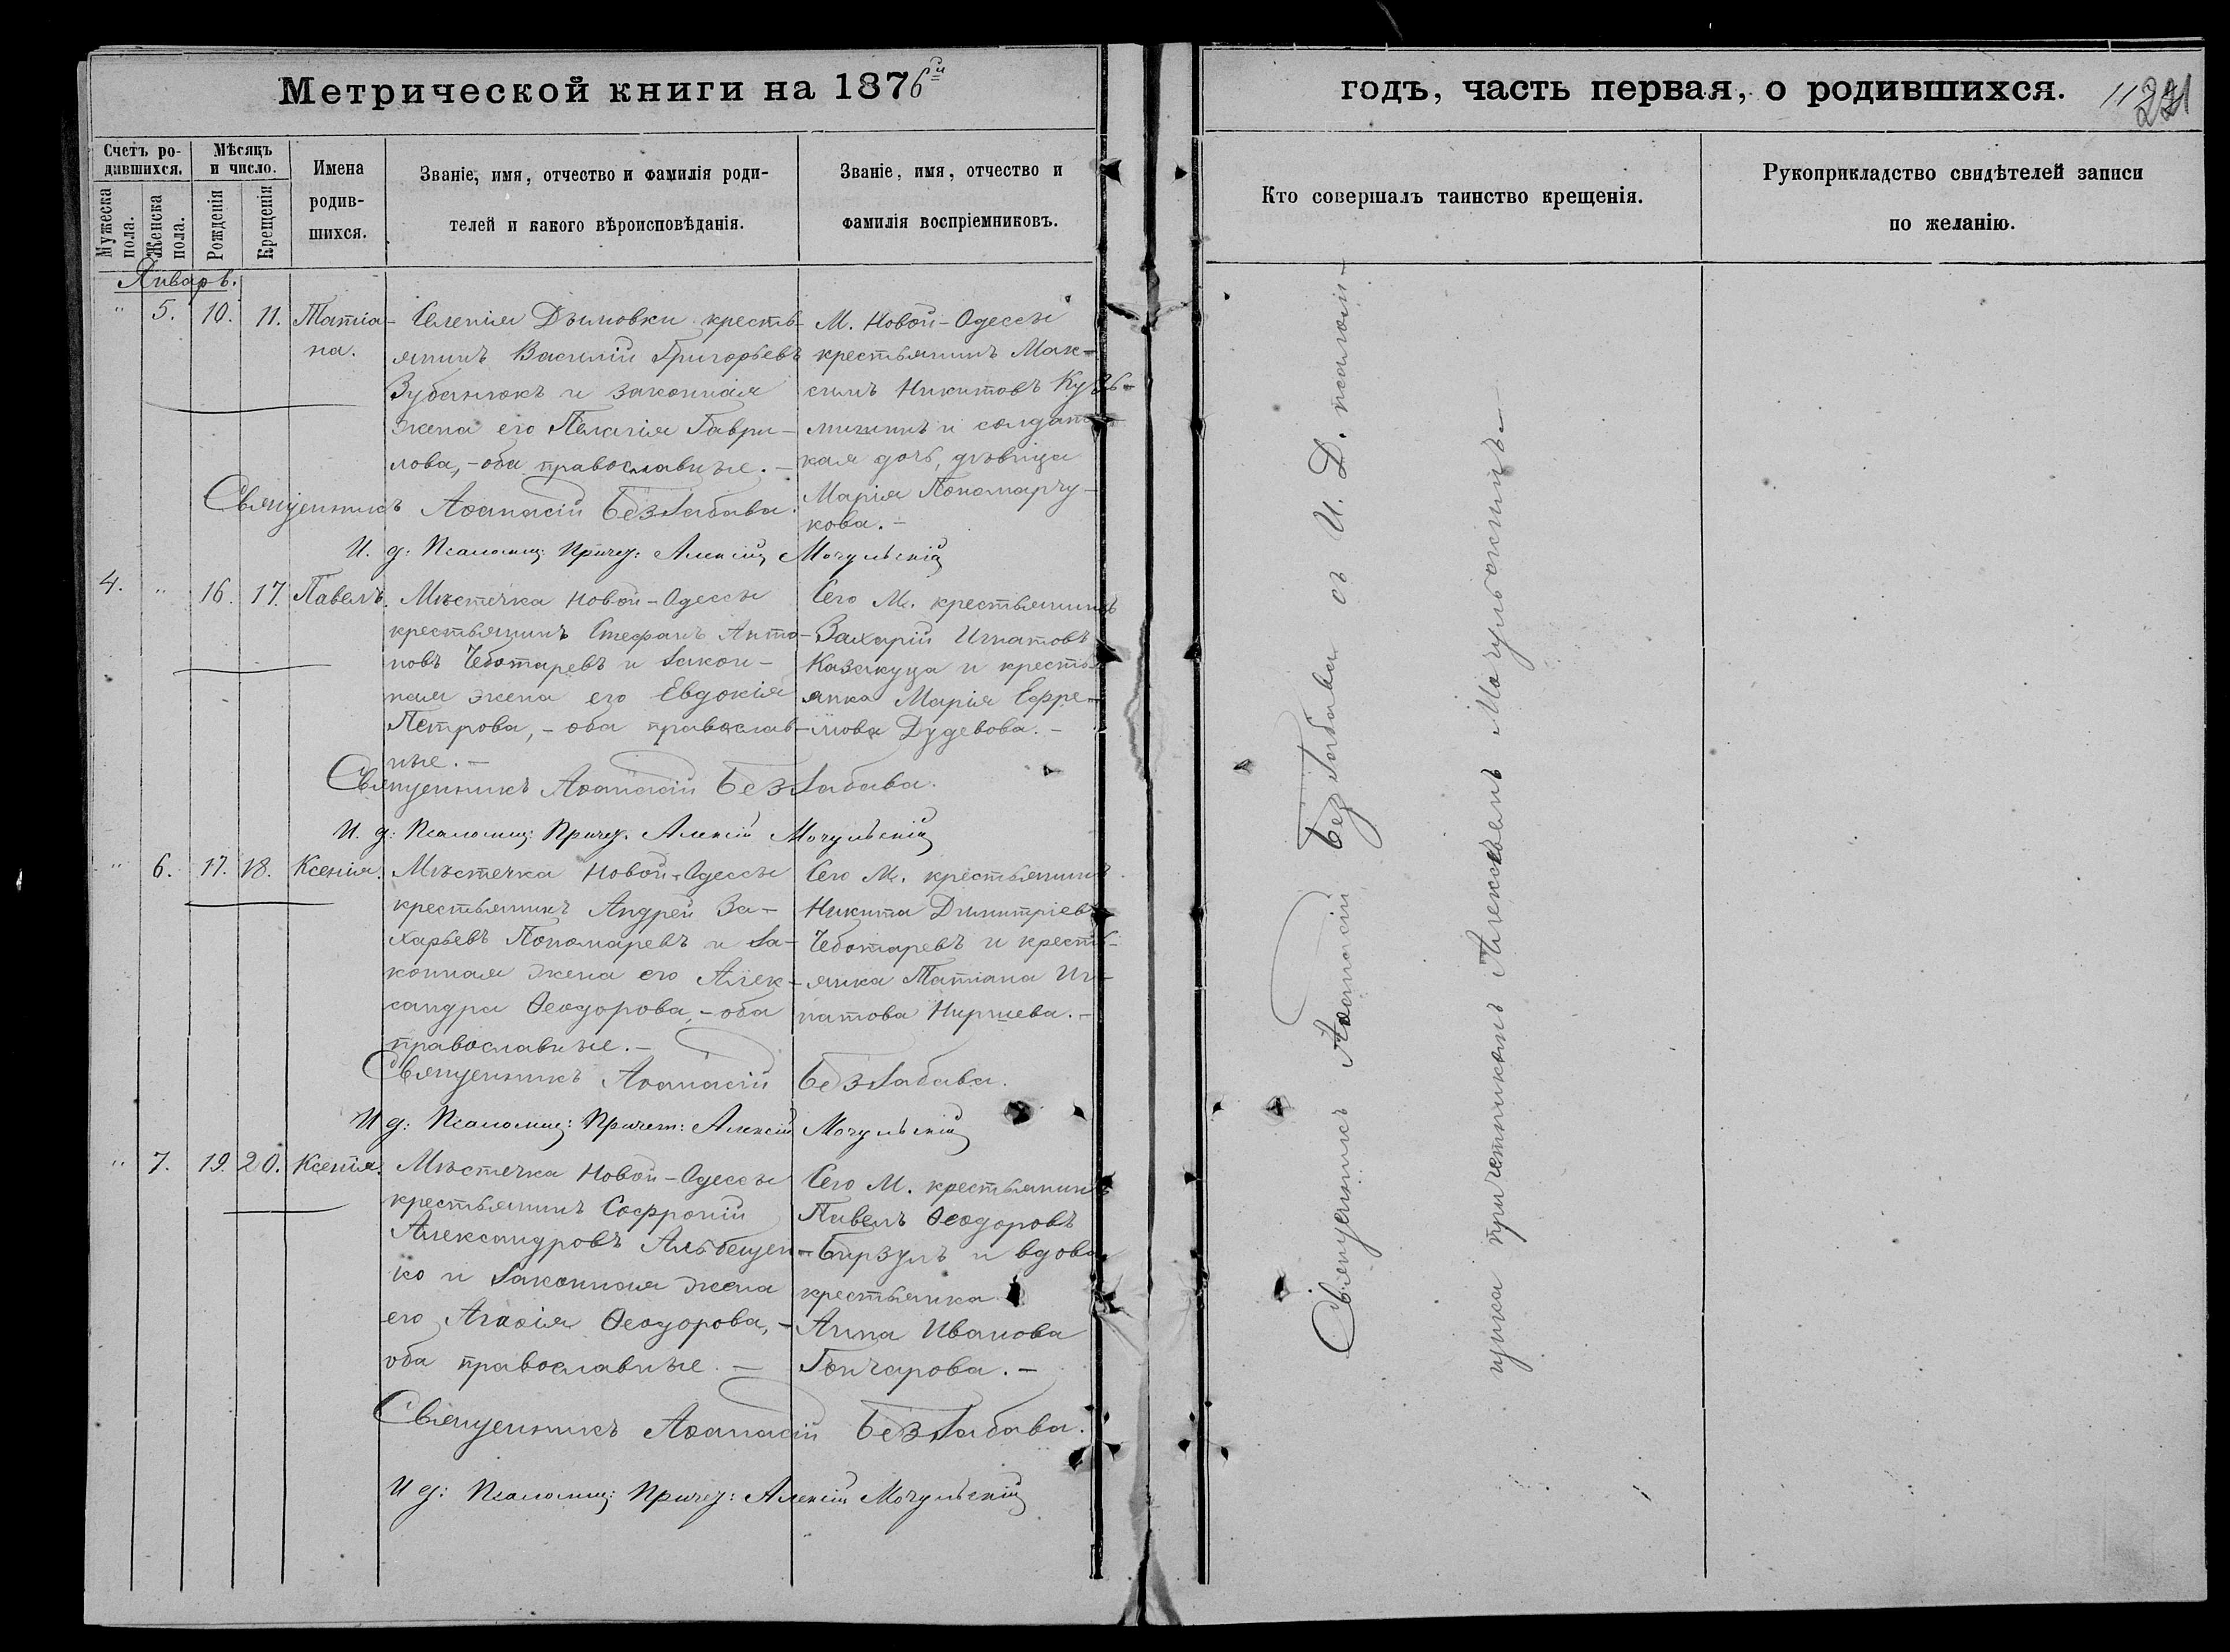 Метрической книги на 1876й
годъ, часть первая, о родившихся.
Счетъ ро-
дившихся.
Мужеска
пола.
Женска
пола.
Мѣсяцъ
и число.
Рожденія
Крещенія
Имена
родив-
шихся.
Званіе, имя, отчество и фамилія роди-
телей и какого вѣроисповѣданія.
Званіе, имя, отчество и
фамилія воспріемниковъ.
Кто совершалъ таинство крещенія.
Рукоприкладство свидѣтелей записи
по желанію.
Январь.
" 5. 10. 11. Татіа-
на.
Селенія Дымовки кресть-
янинъ Василій Григорьевъ
Зубанюкъ и законная
жена его Пелагія Гаври-
лова, - оба православные. -
М. Новой-Одессы
крестьянинъ Мак-
симъ Никитовъ Кузь-
минъ и солдатс-
кая дочь, дѣвица
Марія Пономарчу-
кова. -
Священникъ Аѳанасій Беззабава.
И. д: Псаломщ: Причет: Алексій Мочульскій
4. " 16. 17. Павелъ.
Мѣстечка Новой-Одессы
крестьянинъ Стефанъ Анто-
новъ Чеботаревъ и закон-
ная жена его Евдокія
Петрова, - оба православ-
ные. -
Сего М. крестьянинъ
Захарій Игнатовъ
Казакуца и кресть-
янка Марія Ефре-
мова Дудевова. -
Священникъ Аѳанасій Беззабава.
И. д: Псаломщ: Причет. Алексій Мочульскій
" 6. 17. 18. Ксенія.
Мѣстечка Новой-Одессы
крестьянинъ Андрей За-
харьевъ Пономаревъ и за-
конная жена его Алек-
сандра Ѳеодорова, - оба
православные. -
Сего М. крестьянинъ
Никита Димитріевъ
Чеботаревъ и кресть-
янка Татіана Иг-
натова Ниршева. -
Священникъ Аѳанасій Беззабава.
И д: Псаломщ: Причет: Алексій Мочульскій
" 7. 19. 20. Ксенія.
Мѣстечка Новой-Одессы
крестьянинъ Софроній
Александровъ Альбещен-
ко и законная жена
его Агафія Ѳеодорова, -
оба православные. -
Сего М. крестьянинъ
Павелъ Ѳеодоровъ
Бирзулъ и вдова
крестьянка
Анна Иванова
Гончарова. -
Священникъ Аѳанасій Беззабава.
И д: Псаломщ: Причет: Алексій Мочульскій
Священникъ Аѳанасій Беззабава съ И. Д. псалом-
щика причетникомъ Алексѣемъ Мочульскимъ. -